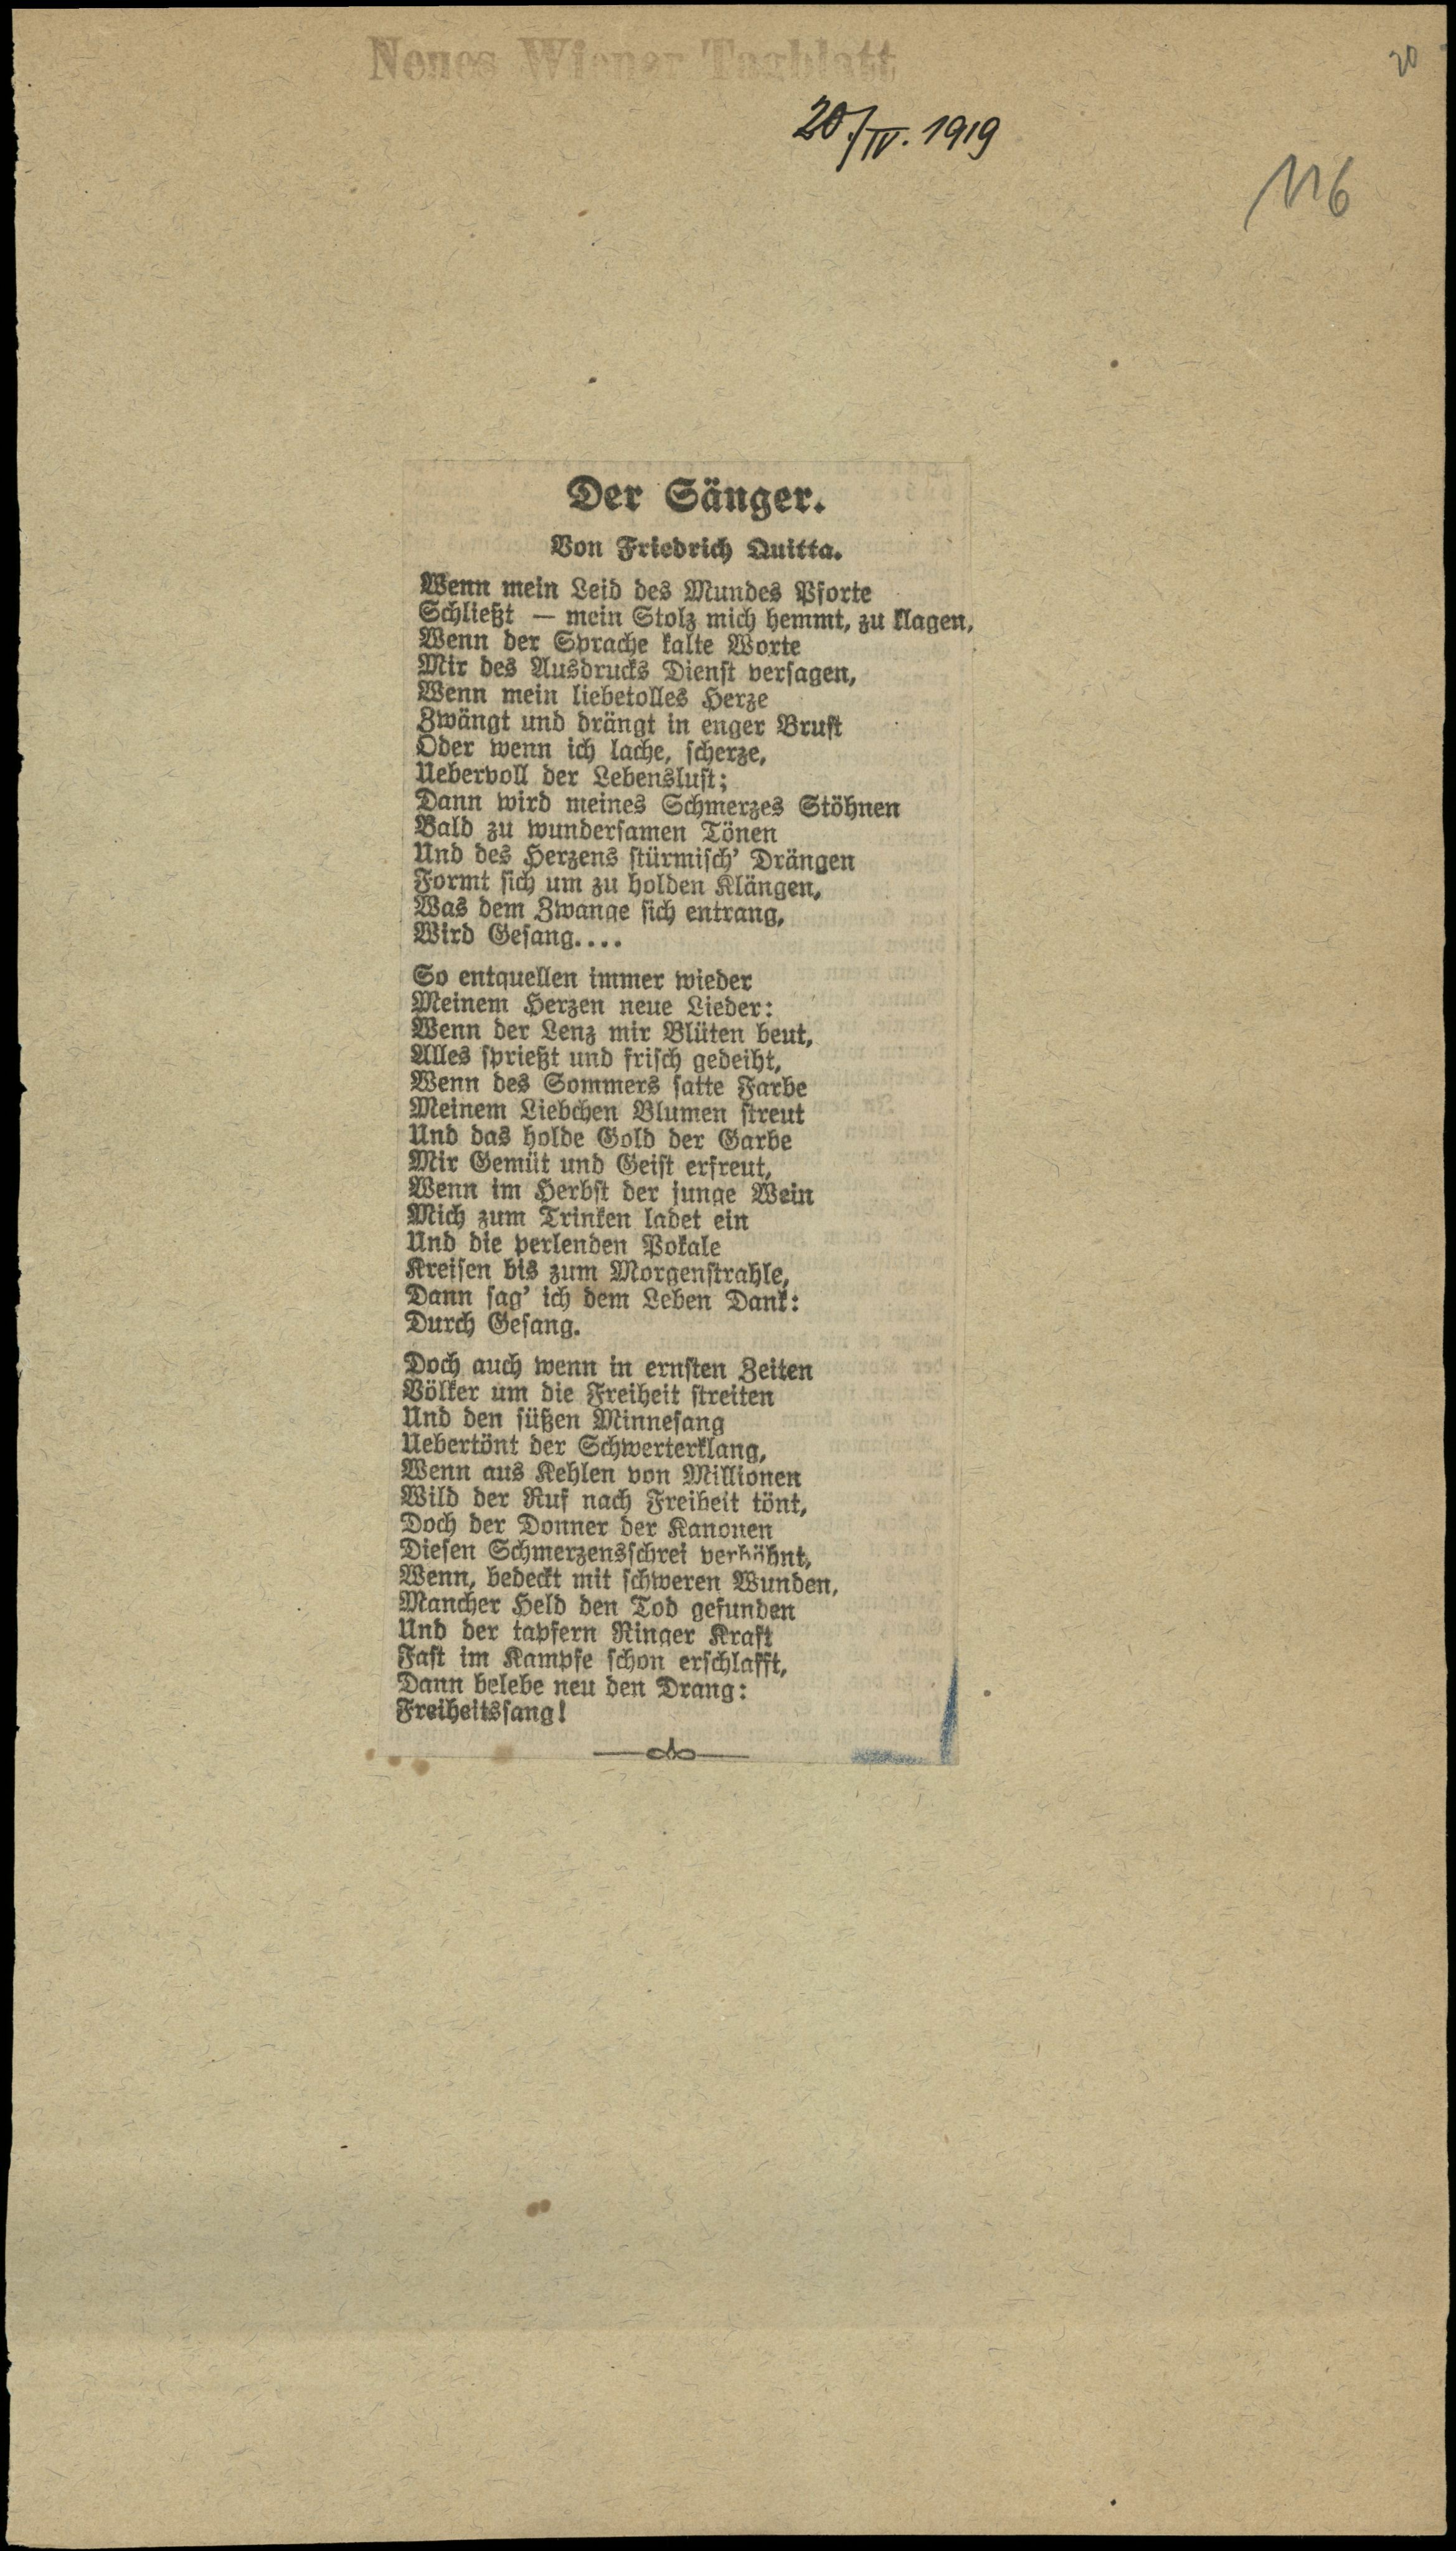 20
Neues Wiener Tagblatt
20./IV. 1919
116
Der Sänger.
Von Friedrich Quitta.
Wenn mein Leid des Mundes Pforte
Schließt — mein Stolz mich hemmt, zu klagen,
Wenn der Sprache kalte Worte
Mir des Ausdrucks Dienst versagen,
Wenn mein liebetolles Herze
Zwängt und drängt in enger Brust
Oder wenn ich lache, scherze,
Uebervoll der Lebenslust;
Dann wird meines Schmerzes Stöhnen
Bald zu wundersamen Tönen
Und des Herzens stürmisch' Drängen
Formt sich um zu holden Klängen,
Was dem Zwange sich entrang,
Wird Gesang....
So entquellen immer wieder
Meinem Herzen neue Lieder:
Wenn der Lenz mir Blüten beut,
Alles sprießt und frisch gedeiht,
Wenn des Sommers satte Farbe
Meinem Liebchen Blumen streut
Und das holde Gold der Garbe
Mir Gemüt und Geist erfreut,
Wenn im Herbst der junge Wein
Mich zum Trinken ladet ein
Und die perlenden Pokale
Kreisen bis zum Morgenstrahle,
Dann sag' ich dem Leben Dank:
Durch Gesang.
Doch auch wenn in ernsten Zeiten
Völker um die Freiheit streiten
Und den süßen Minnesang
Uebertönt der Schwerterklang,
Wenn aus Kehlen von Millionen
Wild der Ruf nach Freiheit tönt,
Doch der Donner der Kanonen
Diesen Schmerzensschrei verhöhnt,
Wenn, bedeckt mit schweren Wunden,
Mancher Held den Tod gefunden
Und der tapfern Ringer Kraft
Fast im Kampfe schon erschlafft,
Dann belebe neu den Drang:
Freiheitssang!